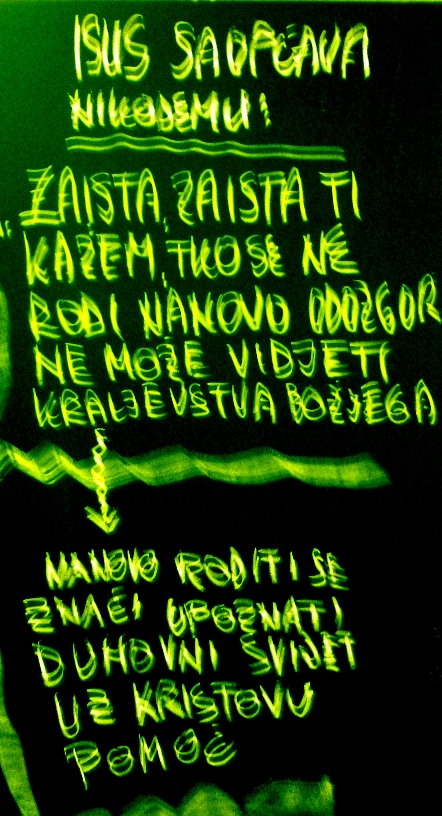 ISUS SAOPĆAVA
NIKODEMU:
"ZAISTA, ZAISTA TI
KAŽEM, TKO SE NE
RODI NANOVO ODOZGOR
NE MOŽE VIDJETI
KRALJEVSTVA BOŽJEGA
NANOVO RODITI SE
ZNAČI UPOZNATI
DUHOVNI SVIJET
UZ KRISTOVU
POMOĆ